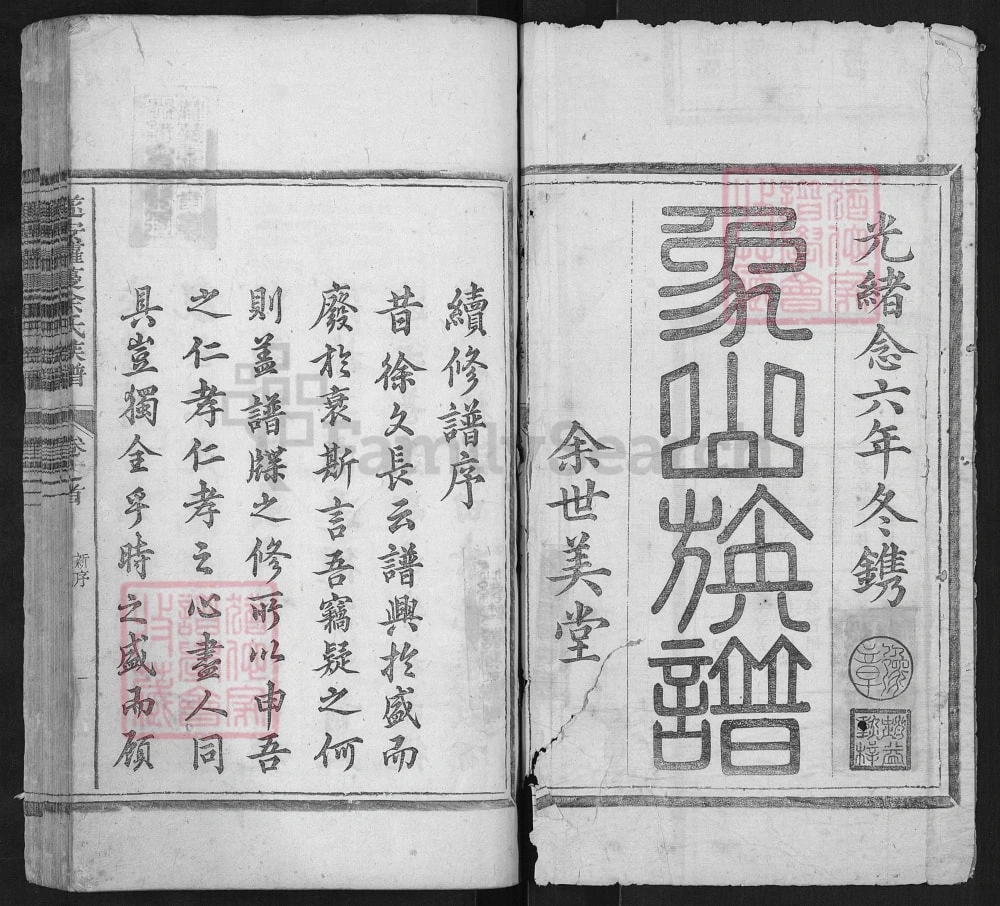 光緒念六年冬鐫
象山族譜
余世美堂
續修譜序
昔徐文長云譜興扵盛而
廢扵衰斯言吾竊疑之何
則盖譜牒之修所以申吾
之仁孝仁孝之心盡人同
具豈獨全乎時之盛而顧
余氏族譜
新序
一
FamilySearch